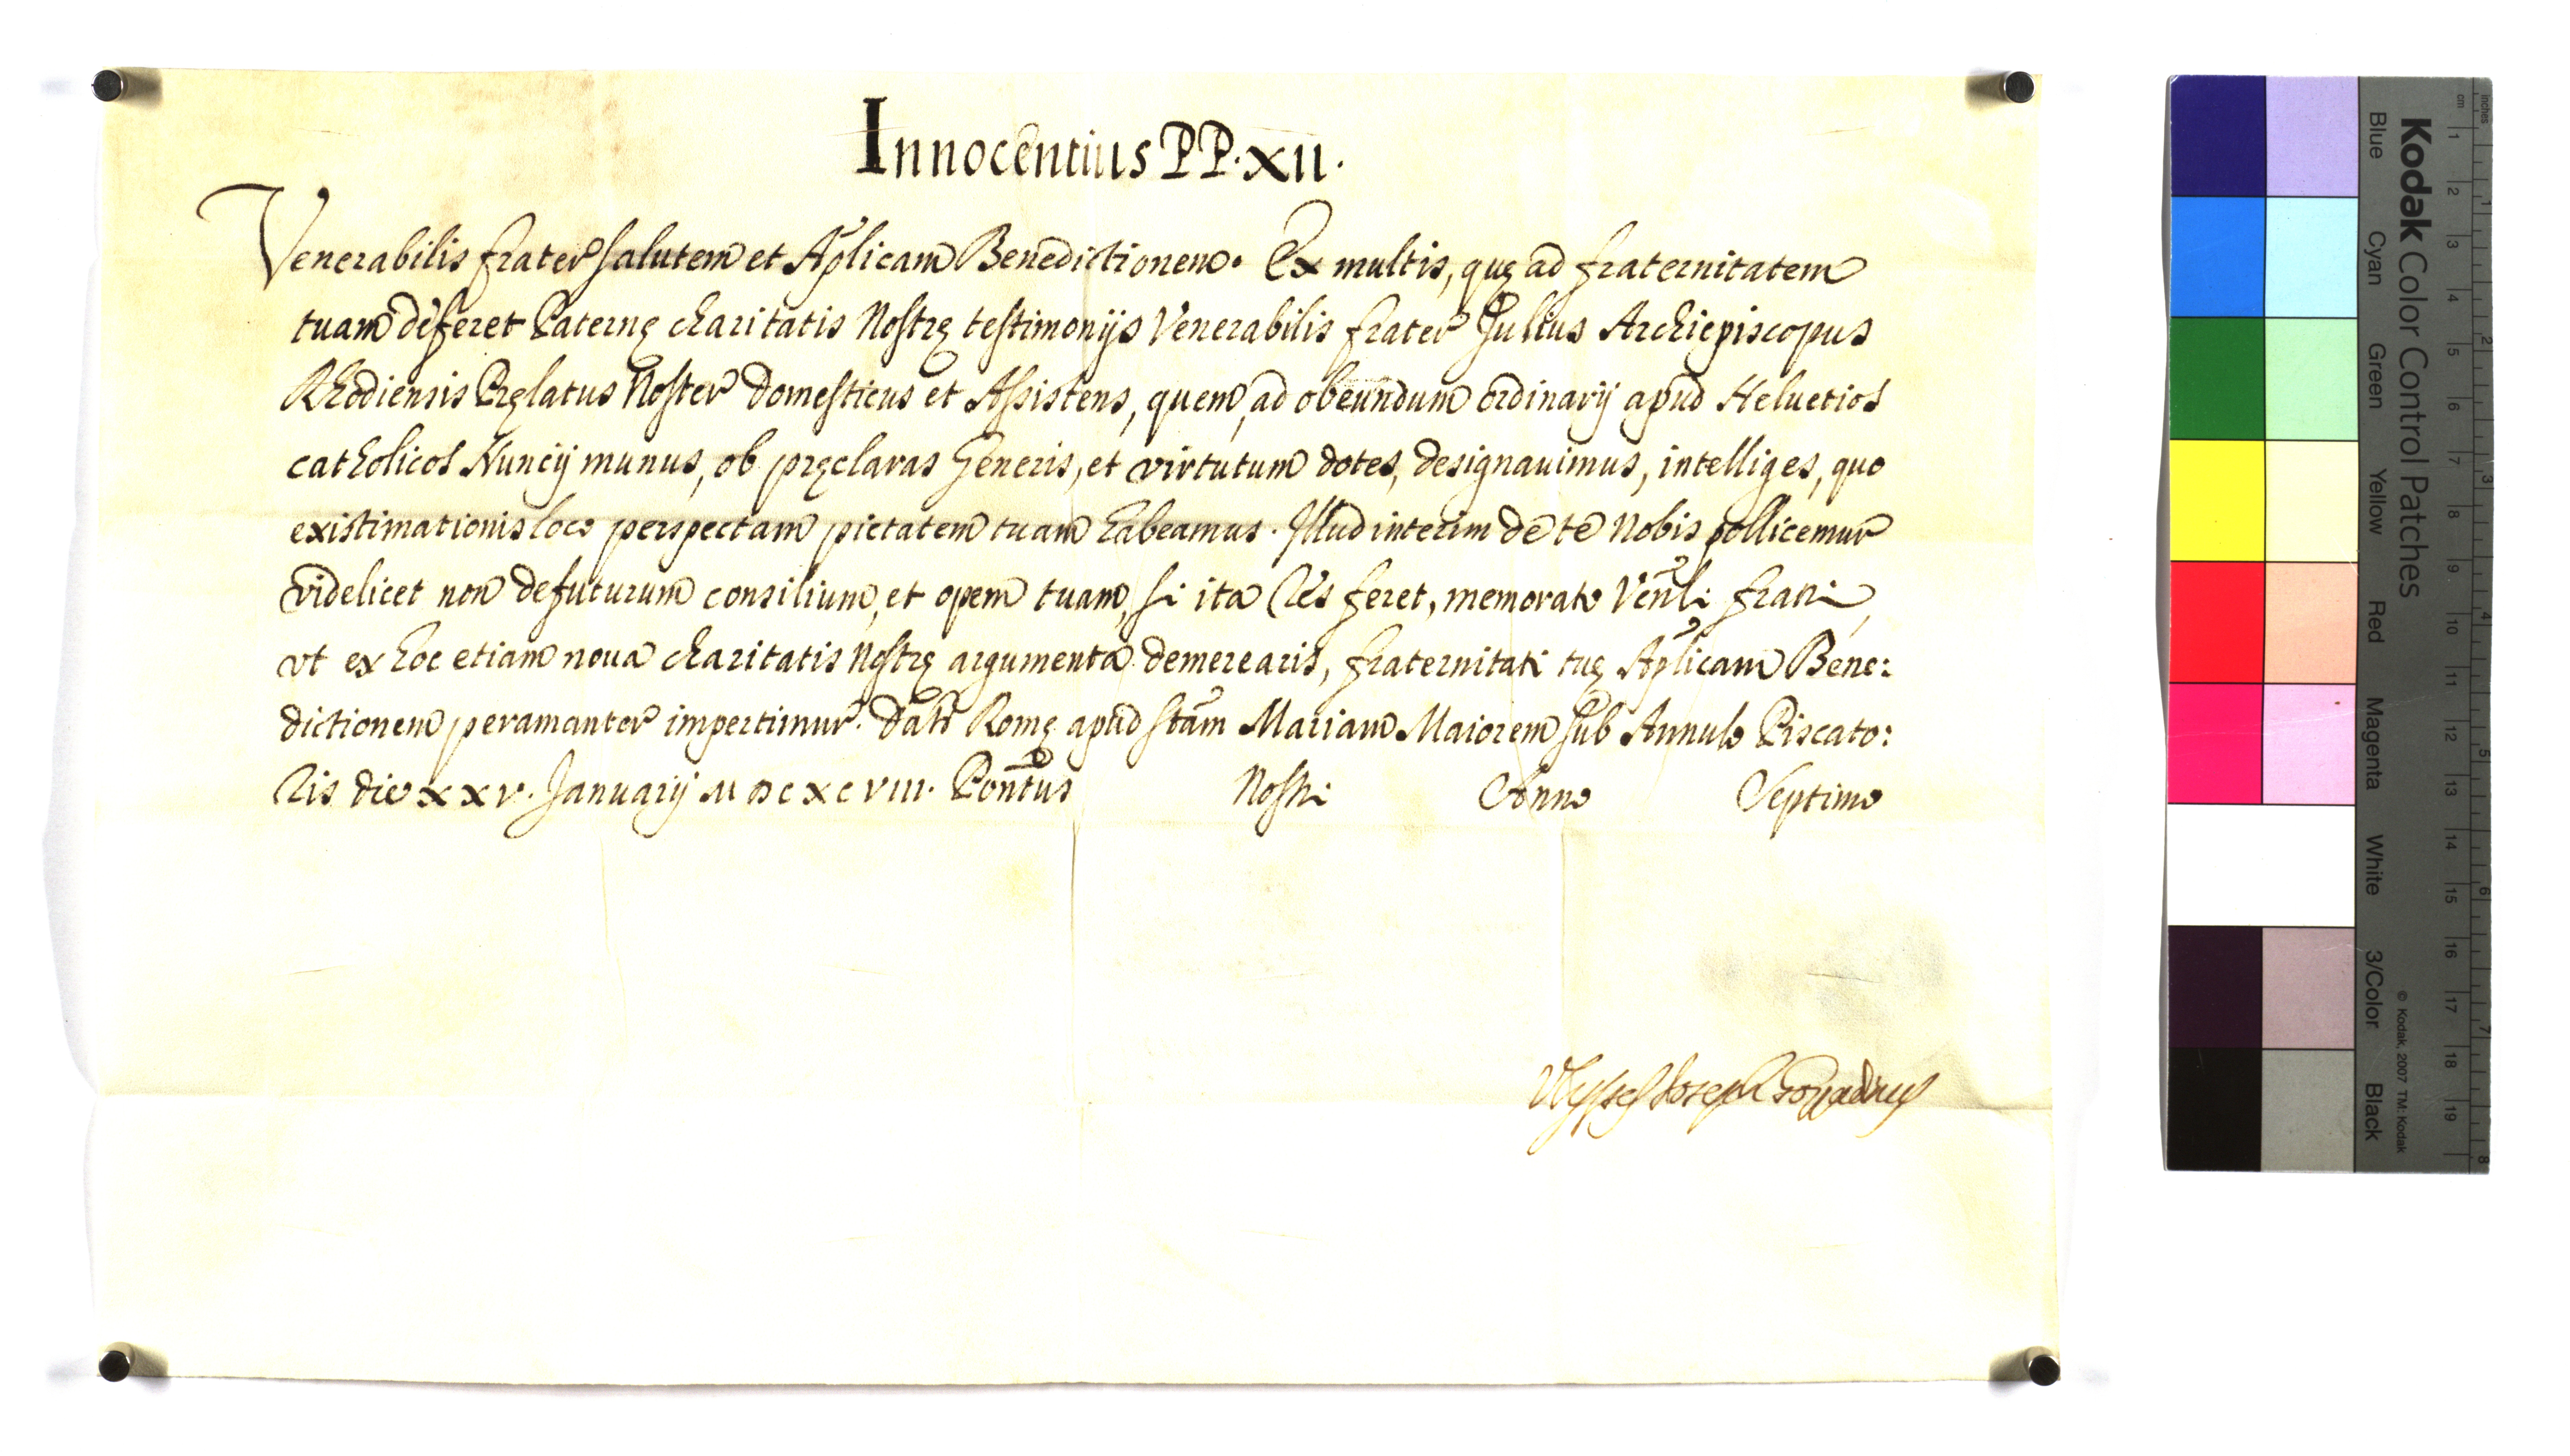 Innocentius PP. XII.
Venerabilis frater salutem et Aplicam Benedictionem. Ex multis, quę ad fraternitatem
tuam deferet Paternę charitatis Nostrę testimonijs Venerabilis frater Julius Archiepiscopus
Rhodiensis Pręlatus Noster Domesticus et Assistens, quem, ad obeundum ordinarij apud Heluetios
catholicos Nuncij munus, ob pręclaras Generis, et virtutum dotes, designauimus, intelliges, quo
existimationis loco perspectam pietatem tuam habeamus. Illud interim de te Nobis pollicemur
videlicet non defuturum consilium, et opem tuam, si ita res feret, memorato Venli fratri,
vt ex hoc etiam noua charitatis Nostrę argumenta demerearis, fraternitati tuę Aplicam Bene:
dictionem peramanter impertimur. Dat Romę apud Stam Mariam Maiorem sub Annulo Piscato:
ris die xxv. Januarij MDCXCVIII. Pontus Nostri Anno Septimo
Vlysses Joseph Gozzadinus
Kodak Color Control Patches
Blue Cyan Green Yellow Red Magenta White 3/Color Black
© Kodak, 2007 TM: Kodak
inches 1 2 3 4 5 6 7 8
cm 1 2 3 4 5 6 7 8 9 10 11 12 13 14 15 16 17 18 19